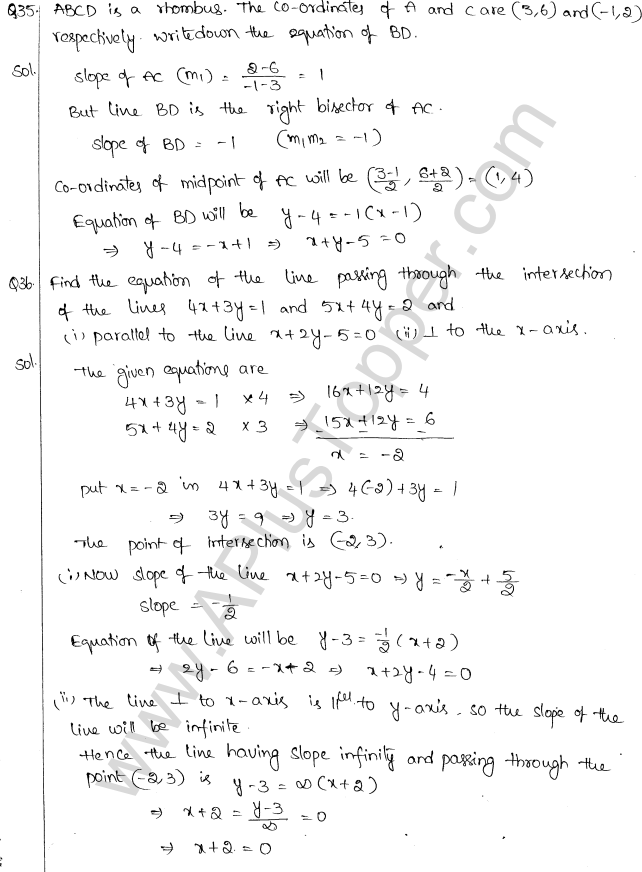 Q35. ABCD is a rhombus. The Co-ordinates of A and C are (3,6) and (-1,2)
respectively. Write down the equation of BD.
Sol. Slope of AC (m₁) = (2-6)/(-1-3) = 1
But line BD is the right bisector of AC.
slope of BD = -1 (m₁m₂ = -1)
Co-ordinates of midpoint of AC will be ((3-1)/2, (6+2)/2) = (1,4)
Equation of BD will be y-4 = -1(x-1)
⇒ y-4 = -x+1 ⇒ x+y-5=0
Q36. Find the equation of the line passing through the intersection
of the lines 4x+3y=1 and 5x+4y=2 and
(i) parallel to the line x+2y-5=0 (ii) ⊥ to the x-axis.
Sol. The given equations are
4x+3y = 1 ×4 ⇒ 16x+12y = 4
5x+4y = 2 ×3 ⇒ 15x+12y = 6
- - -
x = -2
put x=-2 in 4x+3y=1 ⇒ 4(-2)+3y = 1
⇒ 3y = 9 ⇒ y = 3.
The point of intersection is (-2,3).
(i) Now slope of the line x+2y-5=0 ⇒ y = -x/2 + 5/2
slope = -1/2
Equation of the line will be y-3 = -1/2 (x+2)
⇒ 2y-6 = -x+2 ⇒ x+2y-4=0
(ii) The line ⊥ to x-axis is ||lel to y-axis. so the slope of the
line will be infinite.
Hence the line having slope infinity and passing through the
point (-2,3) is y-3 = ∞(x+2)
⇒ x+2 = (y-3)/∞ = 0
⇒ x+2 = 0
www.APlusTopper.com